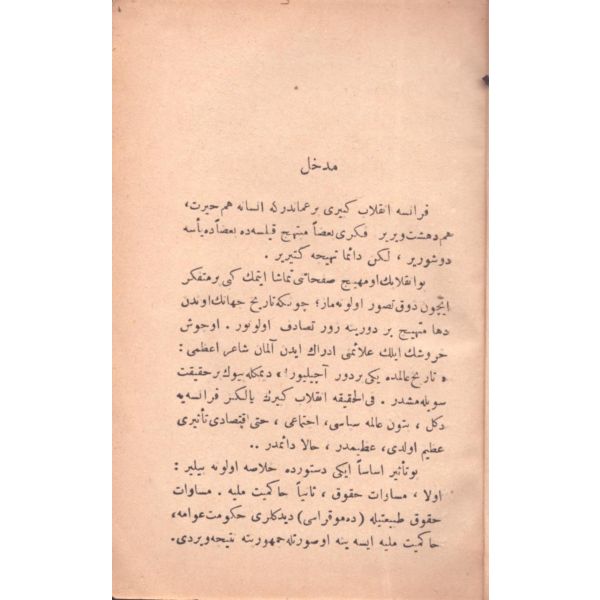 مدخل
فرانسه انقلاب كبیری بر عماندر كه انسانه هم حیرت،
هم دهشت ویریر فكری بعضاً متهیج قیلسه ده بعضاً ده یأسه
دوشوریر ، لكن دائما تهیجه كتیریر .
بو انقلابك او مهیج صفحاتنی تماشا ایتمك كبی بر متفكر
ایچون ذوق تصور اولونه ماز؛ چونكه تاریخ جهانك اوندن
دها متهیج بر دورینه زور تصادف اولونور . او جوش
خروشك ایلك علائمنی ادراك ایدن آلمان شاعر اعظمی :
« تاریخ عالمده یكی بر دور آچیلیور! » دیمكله بیوك بر حقیقت
سویله مشدر . فی الحقیقه انقلاب كبیرك یالكز فرانسه یه
دكل ، بتون عالمه سیاسی، اجتماعی ، حتی اقتصادی تأثیری
عظیم اولدی، عظیمدر ، حالا دائمدر ..
بو تأثیر اساساً ایكی دستورده خلاصه اولونه بیلیر :
اولا ، مساوات حقوق ، ثانیاً حاكمیت ملیه . مساوات
حقوق طبیعتیله (ده موقراسی) دیدكلری حكومت عوامه،
حاكمیت ملیه ایسه ینه او صورتله جمهوریته نتیجه ویردی.